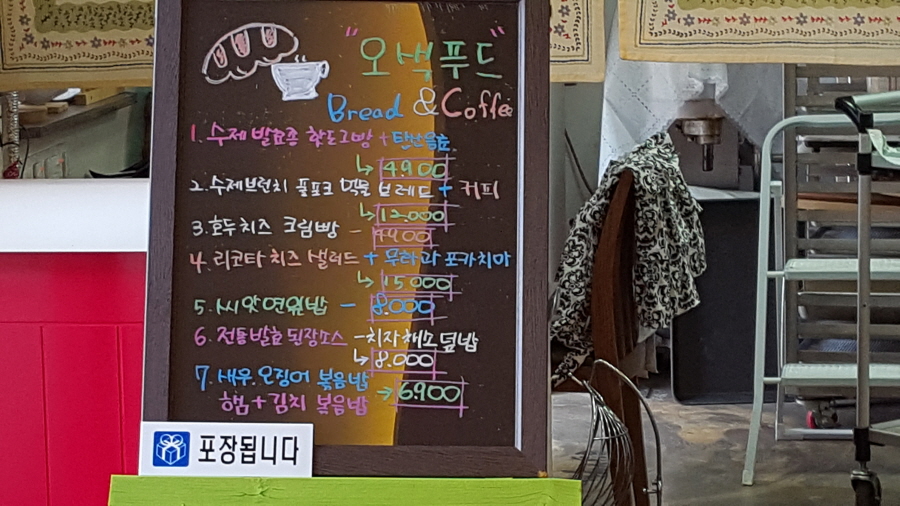 "오색푸드"
Bread & Coffee
1. 수제 발효종 핫도그빵 + 탄산음료
↳ 4.900
2. 수제브런치 풀포크 브레드 + 커피
↳ 12.000
3. 호두치즈 크림빵 - 4900
4. 리코타 치즈 샐러드 + 무화과 포카치아
↳ 15000
5. 씨앗연잎밥 - 8.000
6. 전통발효 된장소스 - 치자채소덮밥
↳ 8.000
7. 새우.오징어 볶음밥
햄 + 김치 볶음밥 → 6.900
포장됩니다